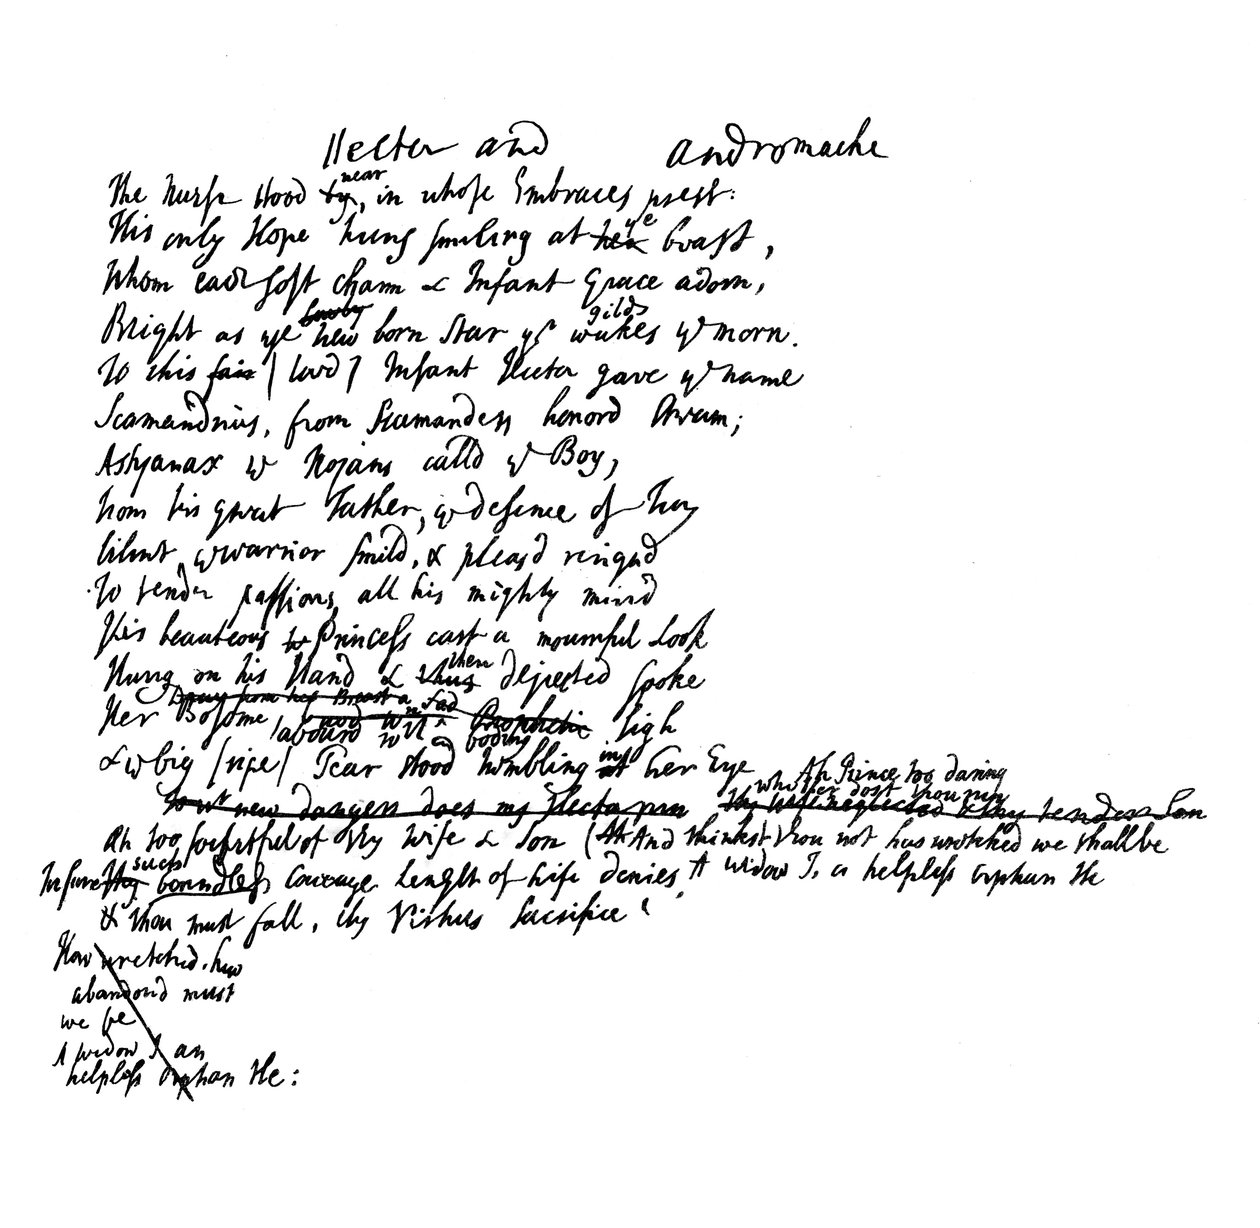 Hector and Andromache
The Nurse stood by, near in whose Embraces prest:
His only Hope hung smiling at her ye breast,
Whom each soft charm & Infant Grace adorn,
Bright as ye new born Star yt wakes gilds ye morn.
To this fair [lov'd] Infant Hector gave ye name
Scamandrius, from Scamanders honord stream;
Astyanax ye Trojans calld ye Boy,
From his great Father, ye defence of Troy
Silent ye warrior smild, & pleasd resignd
To tender passions all his mighty mind
His beauteous Princess cast a mournful Look
Hung on his Hand & thus then dejected spoke
Drawn from her Breast a sad
Her Bosome Prophetic sigh
labourd with a boding
& ye big [ripe] Tear stood trembling at in her Eye
Ah Prince too daring
whither dost thou run
To wt new dangers does my Hector run thy wife neglected & thy tender Son
Ah too forgetful of thy wife & Son (Ah And thinkst thou not how wretched we shall be
For sure thy such boundless Courage Length of Life denies A widow I, a helpless orphan He
& thou must fall, thy Virtues Sacrifice
How wretched, how
abandond must
we be
A widow I an
helpless Orphan He: